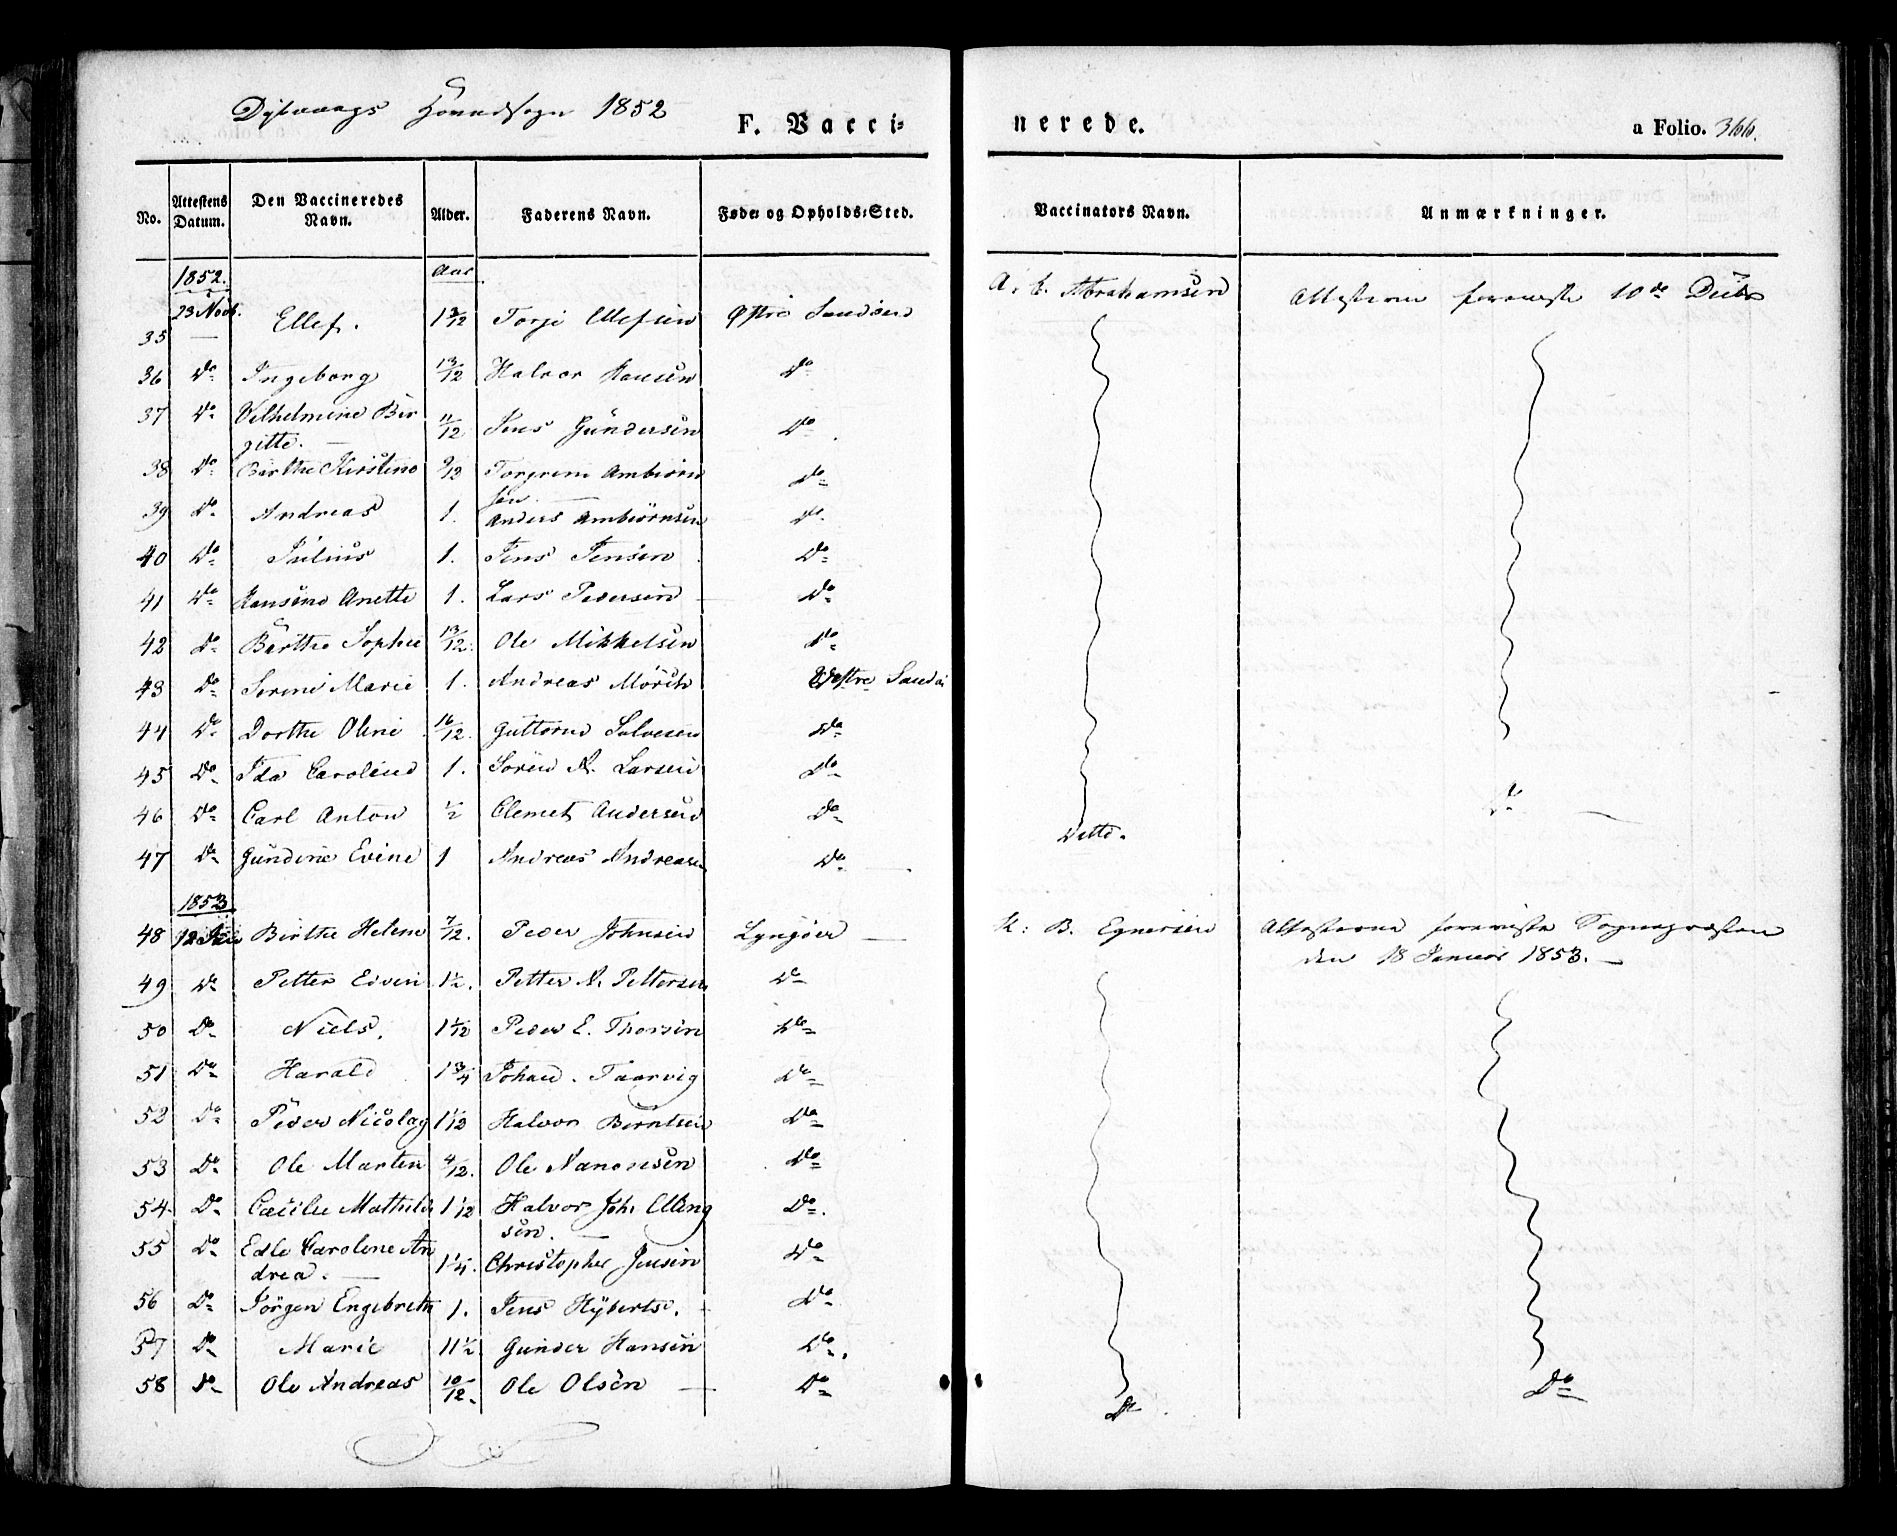 Dybvaags Hovedsogn 1852
F. Vacci-
nerede.
a Folio. 366.
No. Attestens Datum. Den Vaccineredes Navn. Alder. Faderens Navn. Føde- og Opholds-Sted. Vaccinators Navn. Anmærkninger.
1852. Aar
35 23 Novb. Ellef. 1 3/12 Torje Ellefsen Østre Sandøen A. E. Abrahamsen Attesterne foreviste 10de Decbr
36 Do Ingeborg 13/12 Halvor Hansen Do
37 Do Vilhelmine Bir
gitte. 11/12 Jens Gundersen Do
38 Do Birthe Kirstine 9/12 Torgrim Ambiørn
sen. Do
39 Do Andreas 1. Anders Ambiørnsen Do
40 Do Julius 1. Jens Jensen Do
41 Do Hansine Anette 1. Lars Pedersen Do
42 Do Birthe Sophie 13/12. Ole Mikkelsen Do
43 Do Serine Marie 1. Andreas Mörch Westre Sandø
44 Do Dorthe Oline 16/12. Guttorm Salvesen Do
45 Do Ida Caroline 1. Sören N. Larsen Do
46 Do Carl Anton 1/2 Clemet Andersen Do Do
47 Do Gundine Evine 1 Andreas Andreasen Do Ditto.
1853
48 12 Birthe Helene 7/12. Peder Johnsen Lyngøer K. B. Egnersen Attesterne foreviste Sognepræsten
den 18 Januar 1853.
49 Do Petter Edvin 1 1/2. Petter N. Pettersen Do
50 Do Niels. 1 1/12 Peder E. Thorsen Do
51 Do Harald 1 3/4 Johan Taarvig Do
52 Do Peder Nicolay 1 1/2 Halvor Berntsen Do
53 Do Ole Marten 4/12. Ole Nanonsen Do
54 Do Cæcilie Mathilde 1 1/12 Halvor Joh. Elling
sen. Do.
55 Do Edle Caroline An
drea. 1 1/4. Christopher Jensen Do
56 Do Jörgen Engebreth 1. Jens Hyberts. Do
57 Do Marie 11 1/2 Gunder Hansen Do.
58 Do Ole Andreas 10/12. Ole Olsen Do Do Do